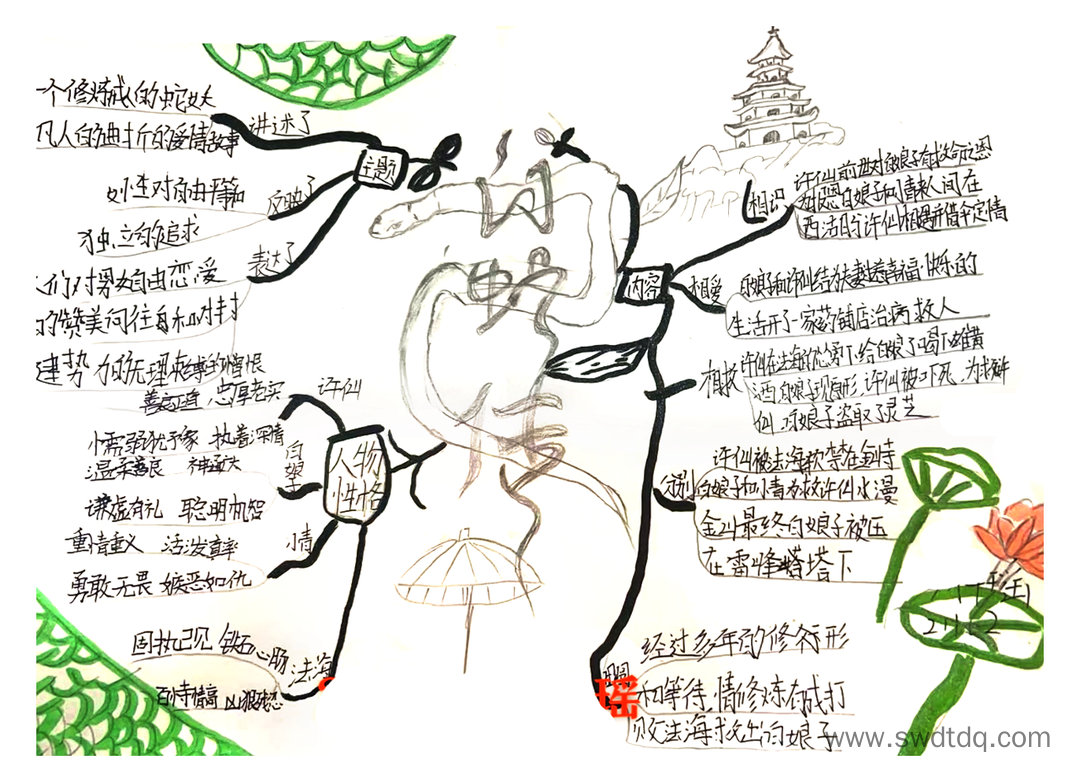 白蛇传
主题
讲述了
一个修炼成人的蛇妖
凡人的曲折的爱情故事
反映了
女性对自由平等和
独立的追求
表达了
人们对男女自由恋爱
的赞美向往和对封
建势力的无理束缚的憎恨
人物
性格
许仙
善良正直 忠厚老实
懦弱犹豫 执着深情
白娘
温柔善良 神通广大
谦虚有礼 聪明机智
小情
重情重义 活泼直率
勇敢无畏 嫉恶如仇
法海
固执己见 铁石心肠
内容
相识
许仙前世对白娘子有救命之恩
白娘子和小情来人间在
西活日与许仙相遇并借伞定情
相爱
白娘子和许仙结为夫妻过着幸福快乐的
生活开了一家药铺店治病救人
相救
许仙在法海的怂恿下给白娘子喝下雄黄
酒白娘子现原形,许仙被吓死,为救许
仙,白娘子盗取了灵芝
分别
许仙被法海软禁在金寺
白娘子和小青为救许仙水漫
金山最终白娘子被压
在雷峰塔塔下
瑶
经过多年的修行形
和等待,情修炼有成打
败法海救出白娘子
www.swdtdq.com